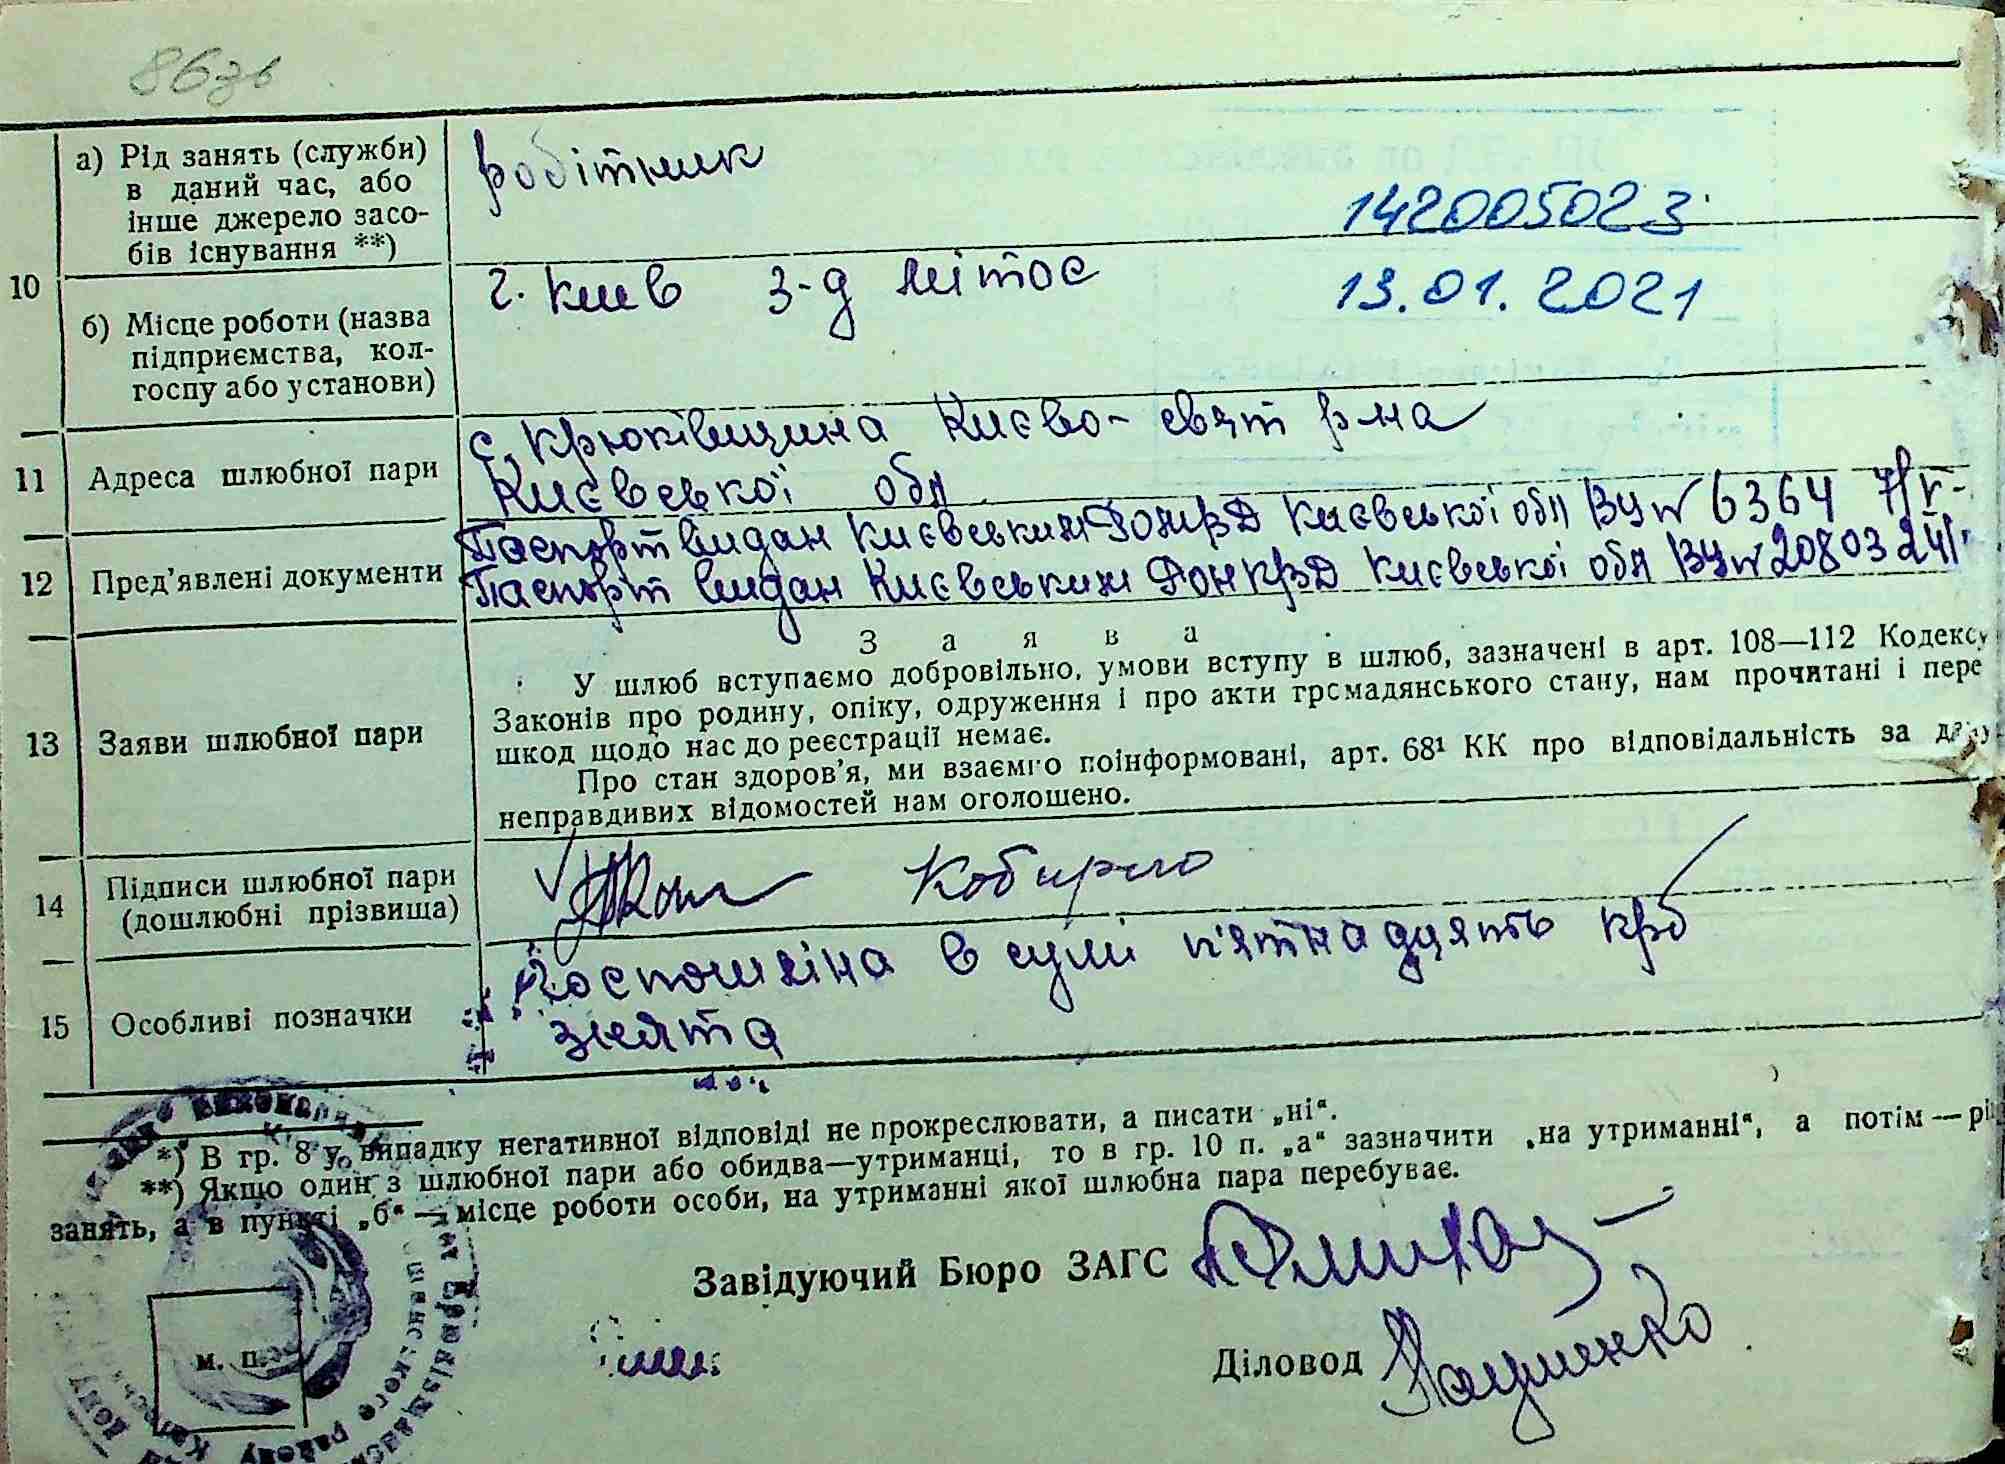 86зв
10
а) Рід занять (служби)
в даний час, або
інше джерело засо-
бів існування **)
робітник
142005023
б) Місце роботи (назва
підприємства, кол-
госпу або установи)
г. Киев з-д
13.01.2021
11 Адреса шлюбної пари
с. Крюківщина Києво-свят р-на
Києвської обл
12 Пред’явлені документи
Паспорт видан Києвським Києвської обл ВУ № 6364
Паспорт видан Києвським Києвської обл ВУ № 20803
13 Заяви шлюбної пари
Заява
У шлюб вступаємо добровільно, умови вступу в шлюб, зазначені в арт. 108—112 Кодексу
Законів про родину, опіку, одруження і про акти громадянського стану, нам прочитані і пере
шкод щодо нас до реєстрації немає.
Про стан здоров’я, ми взаємно поінформовані, арт. 68¹ КК про відповідальність за
неправдивих відомостей нам оголошено.
14 Підписи шлюбної пари
(дошлюбні прізвища)
15 Особливі позначки
в сумі п'ятнадцять крб
знята
*) В гр. 8 у випадку негативної відповіді не прокреслювати, а писати „ні“.
**) Якщо один з шлюбної пари або обидва—утриманці, то в гр. 10 п. „а“ зазначити „на утриманні“, а потім — рі
занять, а в пункті „б“ — місце роботи особи, на утриманні якої шлюбна пара перебуває.
Завідуючий Бюро ЗАГС
м. п.
Діловод